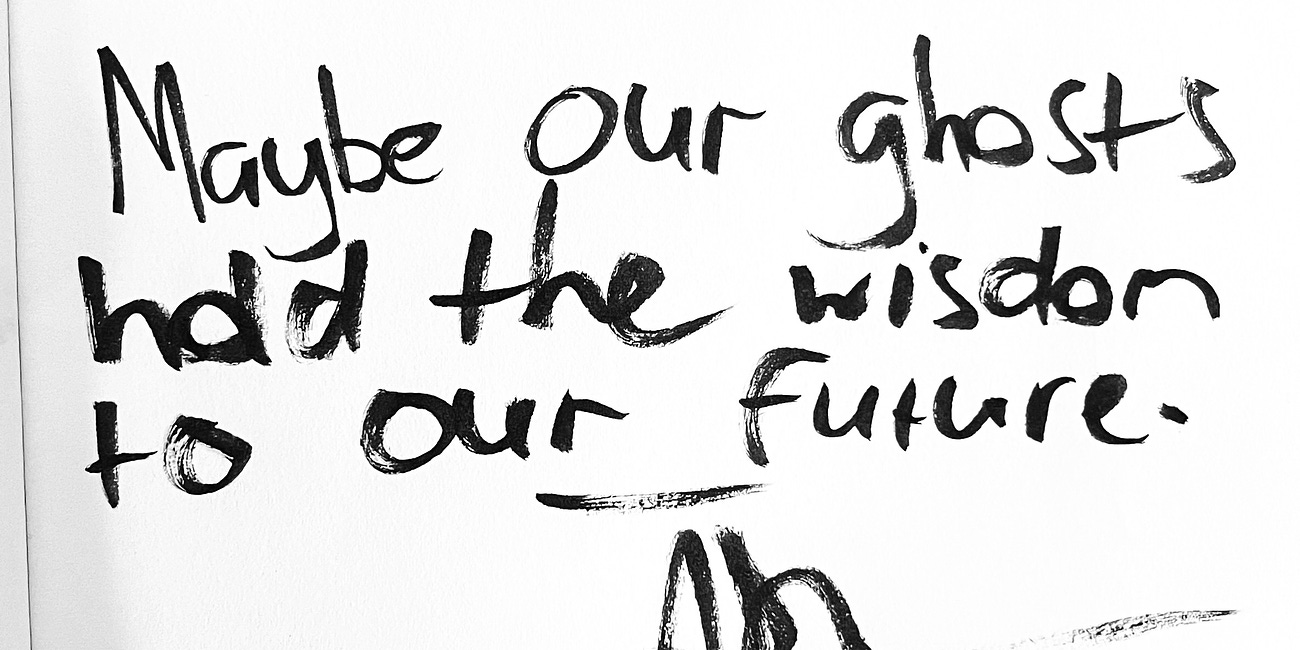 Maybe our ghosts
hold the wisdom
to our future.